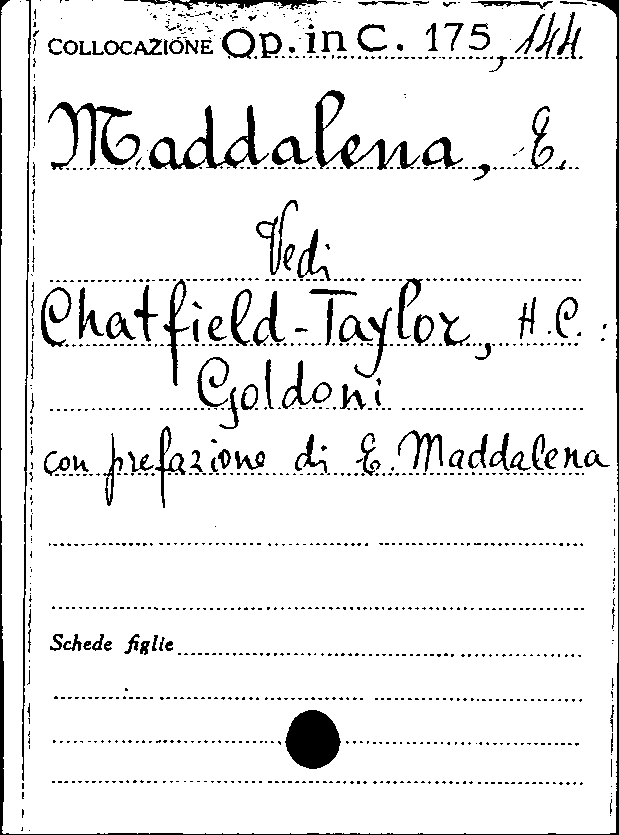 COLLOCAZIONE Op. in C. 175, 144
Maddalena, E.
Vedi
Chatfield-Taylor, H.C.:
Goldoni
con prefazione di E. Maddalena
Schede figlie